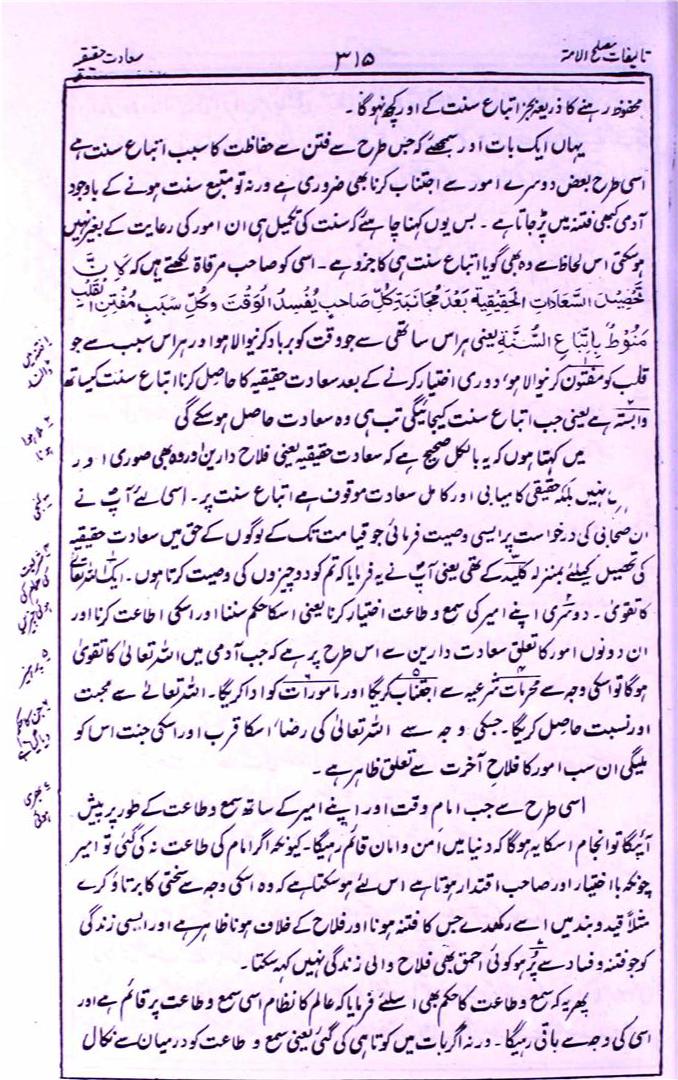 تالیفات مصلح الامۃ ۳۱۵ سعادت حقیقیہ
محفوظ رہنے کا ذریعہ بجز اتباع سنت کے اور کچھ نہوگا۔
یہاں ایک بات اور سمجھئے کہ جس طرح سے فتن سے حفاظت کا سبب اتباع سنت ہے
اسی طرح بعض دوسرے امور سے اجتناب کرنا بھی ضروری ہے ورنہ تو متبع سنت ہونے کے باوجود
آدمی کبھی فتنہ میں پڑجاتا ہے۔ بس یوں کہنا چاہئے کہ سنت کی تکمیل ہی ان امور کی رعایت کے بغیر نہیں
ہوسکتی اس لحاظ سے وہ بھی گویا اتباع سنت ہی کا جزو ہے۔ اسی کو صاحب مرقاۃ لکھتے ہیں کہ کَانَّ
تَحْصِیْلَ السَّعَادَاتِ الْحَقِیْقِیَّةِ بَعْدَ مُجَانَبَةِ کُلِّ صَاحِبٍ یُفْسِدُ الْوَقْتَ وَکُلِّ سَبَبٍ مُفْتِنِ الْقَلْبِ
مَنُوْطٌ بِاِتِّبَاعِ السُّنَّةِ یعنی ہر اس ساتھی سے جو وقت کو برباد کرنیوالا ہو اور ہر اس سبب سے جو
قلب کو مفتون کرنیوالا ہو، دوری اختیار کرنے کے بعد سعادت حقیقیہ کا حاصل کرنا اتباع سنت کیساتھ
وابستہ ہے یعنی جب اتباع سنت کیجائیگی تب ہی وہ سعادت حاصل ہوسکے گی
میں کہتا ہوں کہ یہ بالکل صحیح ہے کہ سعادت حقیقیہ یعنی فلاح دارین اور وہ بھی صوری اور
نہیں بلکہ حقیقی کامیابی اور کامل سعادت موقوف ہے اتباع سنت پر۔ اسی لئے آپؐ نے
ان صحابی کی درخواست پر ایسی وصیت فرمائی جو قیامت تک کے لوگوں کے حق میں سعادت حقیقیہ
کی تحصیل کیلئے بمنزلہ کلید کے تھی یعنی آپؐ نے یہ فرمایا کہ تم کو دو چیزوں کی وصیت کرتا ہوں۔ ایک اللہ تعالےٰ
کا تقویٰ۔ دوسری اپنے امیر کی سمع و طاعت اختیار کرنا یعنی اسکا حکم سننا اور اسکی اطاعت کرنا اور
ان دونوں امور کا تعلق سعادت دارین سے اس طرح پر ہے کہ جب آدمی میں اللہ تعالیٰ کا تقویٰ
ہوگا تو اسکی وجہ سے محرمات شرعیہ سے اجتناب کریگا اور مامورات کو ادا کریگا۔ اللہ تعالےٰ سے محبت
اور نسبت حاصل کریگا۔ جسکی وجہ سے اللہ تعالیٰ کی رضا، اسکا قرب اور اسکی جنت اس کو
ملیگی ان سب امور کا فلاح آخرت سے تعلق ظاہر ہے۔
اسی طرح سے جب امام وقت اور اپنے امیر کے ساتھ سمع و طاعت کے طور پر پیش
آئیگا تو انجام اسکا یہ ہوگا کہ دنیا میں امن و امان قائم رہیگا۔ کیونکہ اگر امام کی طاعت نہ کی گئی تو امیر
چونکہ با اختیار اور صاحب اقتدار ہوتا ہے اس لئے ہوسکتا ہے کہ وہ اسکی وجہ سے سختی کا برتاؤ کرے
مثلاً قید و بند میں اسے رکھدے جس کا فتنہ ہونا اور فلاح کے خلاف ہونا ظاہر ہے اور ایسی زندگی
کو جو فتنہ و فساد سے پُر ہو کوئی احمق بھی فلاح والی زندگی نہیں کہہ سکتا۔
پھر یہ کہ سمع و طاعت کا حکم بھی اسلئے فرمایا کہ عالم کا نظام اسی سمع و طاعت پر قائم ہے اور
اسی کی وجہ سے باقی رہیگا۔ ورنہ اگر بات میں کوتاہی کی گئی یعنی سمع و طاعت کو درمیان سے نکال